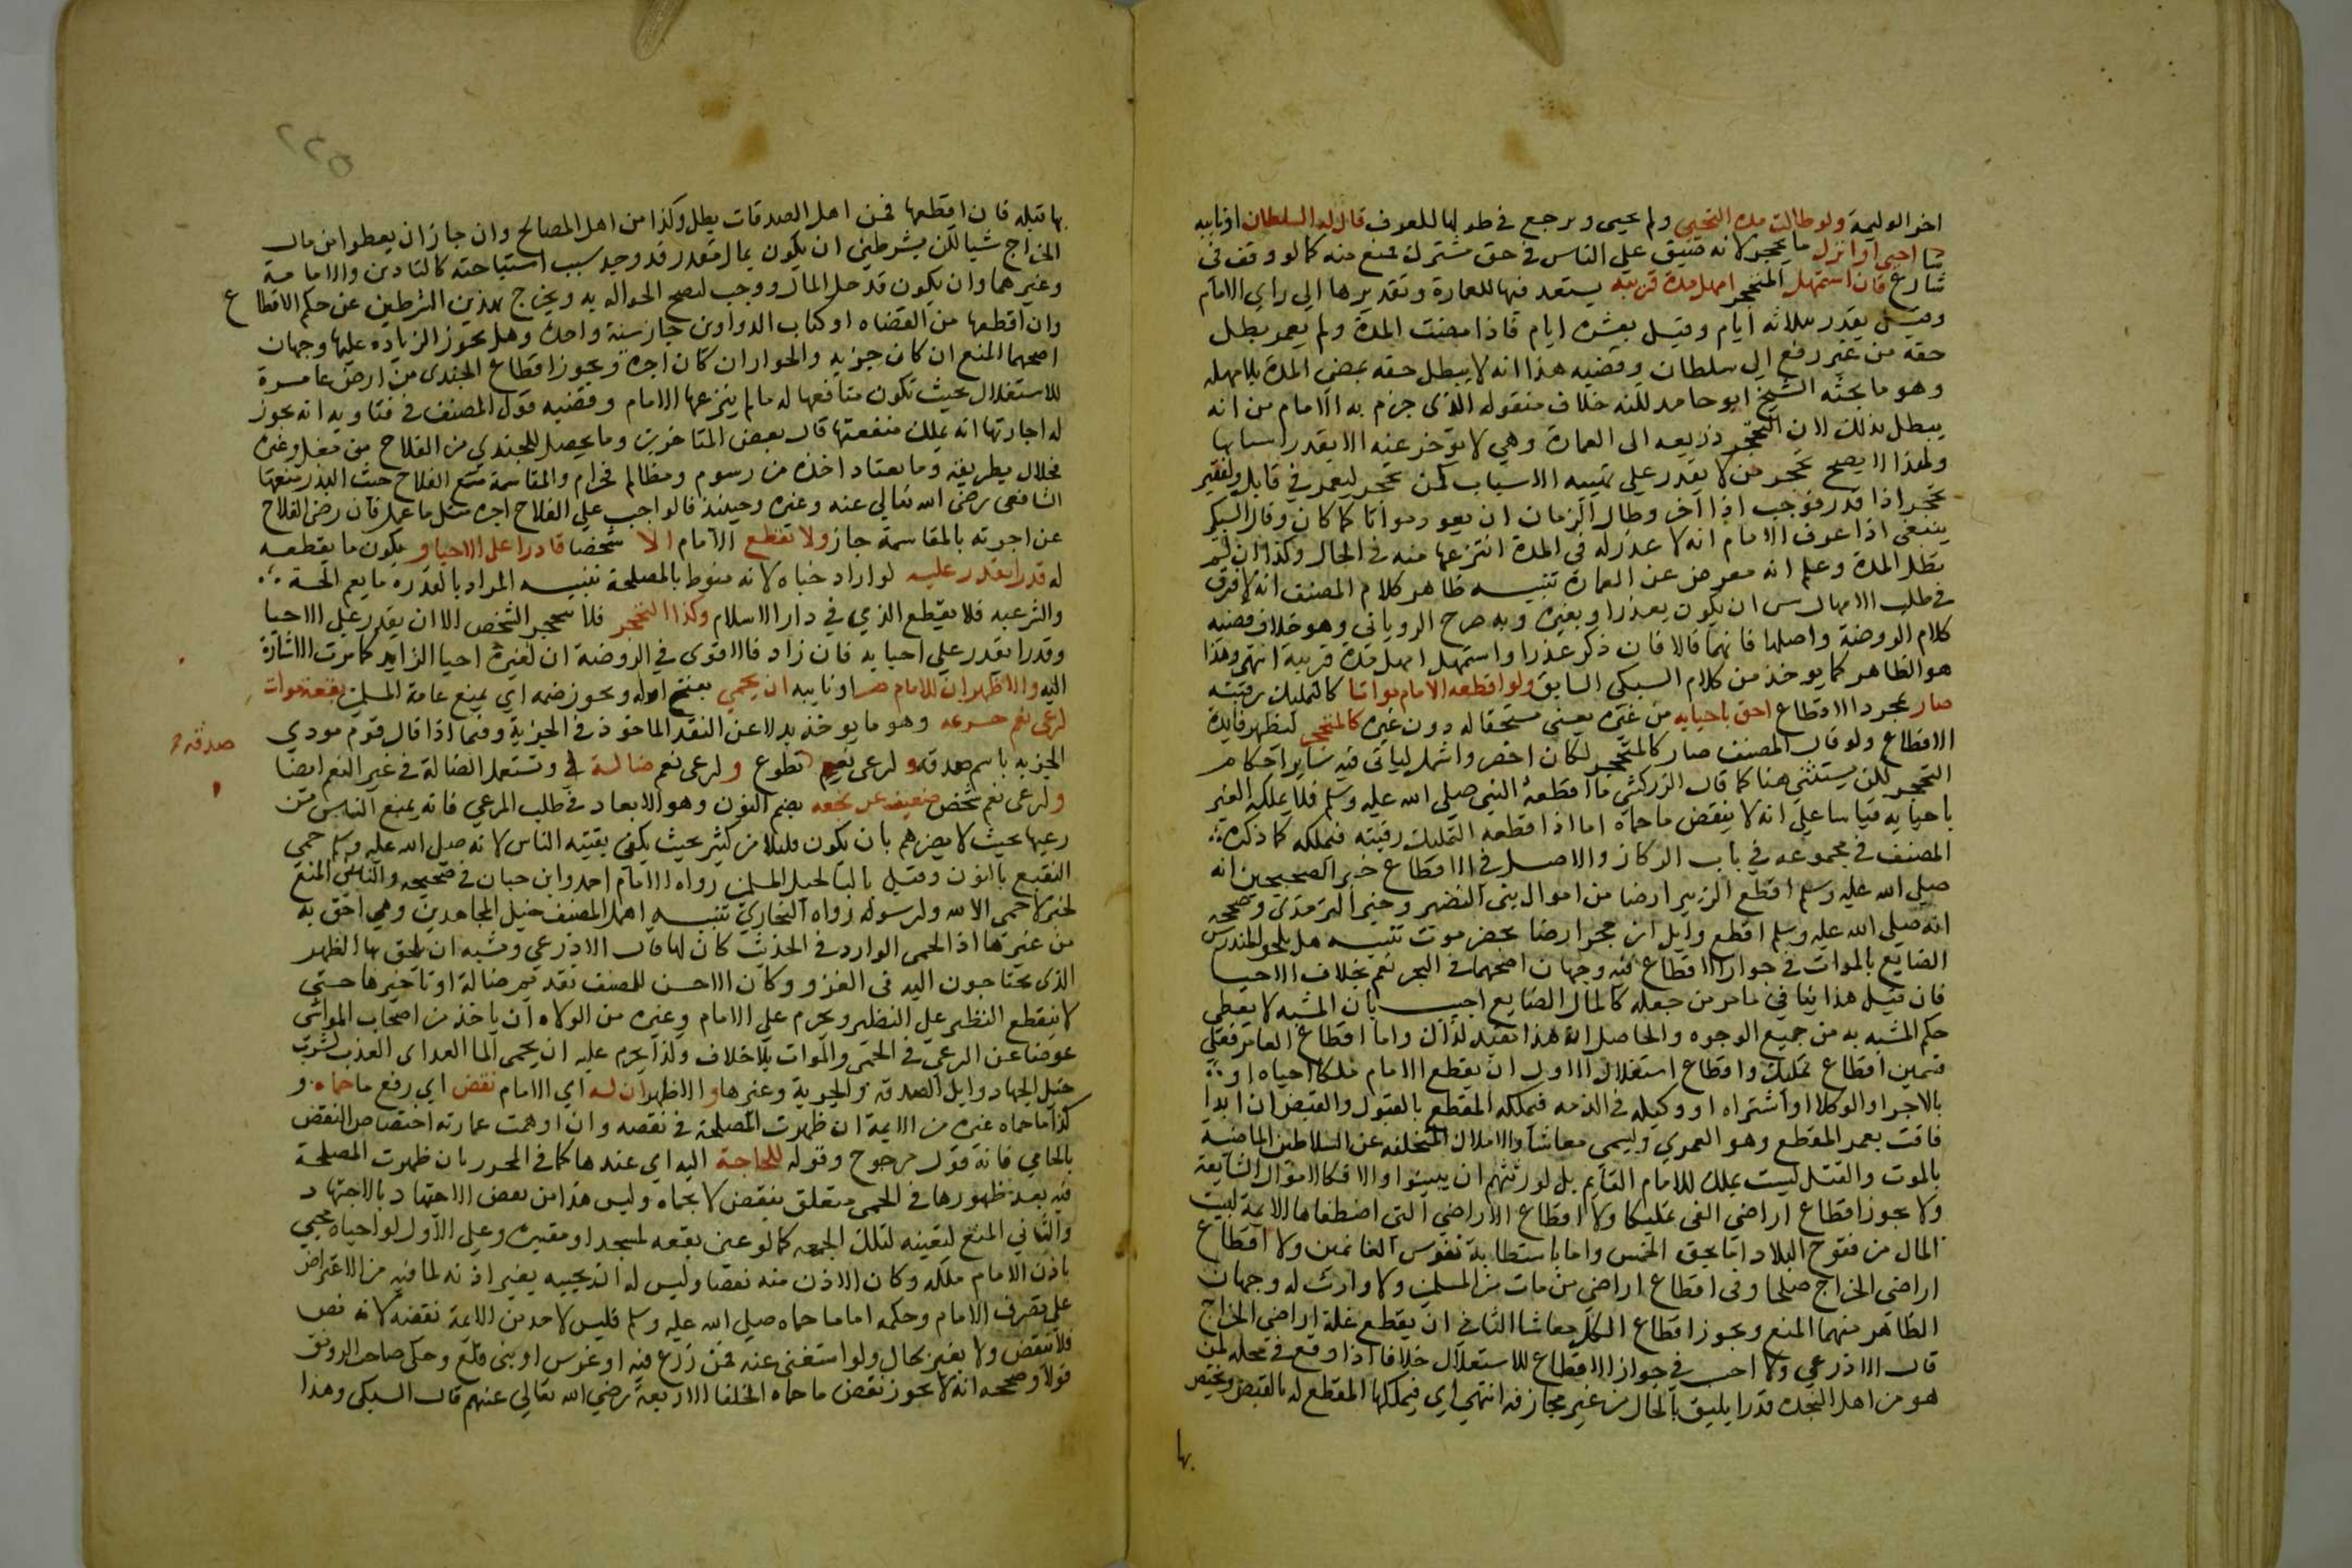 اخر الوليمة ولو طالت مدة التحجر ولم يحيى ويرجع في طولها للعرف قال له السلطان او نايبه
احيى او اترك ما يحجر لانه ضيق على الناس في حق مشترك فمنع منه كما لو وقف في
شارع فان استمهل المتحجر امهل مدة قريبه يستعد فيها للعمارة وتقديرها الى راي الامام
وقيل يقدر بثلاثه ايام وقيل بعشرة ايام فاذا مضت المدة ولم يعمر بطل
حقه من غير رفع الى سلطان وقضيه هذا انه لا يبطل حقه بمضي المدة بلا مهله
وهو ما بحثه الشيخ ابو حامد لكنه خلاف منقوله الذى جزم به الامام من انه
يبطل بذلك لان التحجر ذريعه الى العمارة وهي لا تؤخر عنه الا بقدر اسبابها
ولهذا لا يصح تحجر من لا يقدر على تهييه الاسباب كمن تحجر ليعمر في قابل ولفقير
تحجر اذا قدر فوجب اذا اخر وطال الزمان ان يعود مواتا كما كان وقال السبكي
ينبغي اذا عرف الامام انه لا عذر له في المدة انتزعها منه في الحال وكذا ان لم
تطل المدة وعلم انه معرض عن العمارة تنبيه ظاهر كلام المصنف انه لا فرق
في طلب الامهال بين ان يكون بعذر او بغيره وبه صرح الروياني وهو خلاف قضيه
كلام الروضة واصلها فانهما قالا فان ذكر عذرا واستمهل امهل مدة قريبة انتهى وهذا
هو الظاهر كما يوخذ من كلام السبكي السابق ولو اقطعه الامام مواتا كالتمليك رقبته
صار بمجرد الاقطاع احق باحيايه من غيره يعني مستحقا له دون غيره كالمتحجر لتظهر فايدة
الاقطاع ولو قال المصنف صار كالمتحجر لكان اخصر واشمل لياتي فيه ساير احكام
التحجر لكن يستثنى هنا كما قال الزركشي ما اقطعه النبي صلى الله عليه وسلم فلا يملكه الغير
باحيايه قياسا على انه لا ينقض ما حماه اما اذا اقطعه لتمليك رقبته فيملكه كما ذكره
المصنف في مجموعه في باب الركاز والاصل في الاقطاع خبر الصحيحين انه
صلى الله عليه وسلم اقطع الزبير ارضا من اموال بني النضير وخبر الترمذي وصححه
انه صلى الله عليه وسلم اقطع وايل ابن حجر ارضا بحضرموت تنبيه هل يلحق المندرس
الضايع بالموات في جواز الاقطاع فيه وجهان اصحهما في البحر نعم بخلاف الاحيا
فان قيل هذا ينافي ما مر من جعله كالمال الضايع اجيب بان المشبه لا يعطى
حكم المشبه به من جميع الوجوه والحاصل ان هذا مقيد لذاك واما اقطاع العامر فعلى
قسمين اقطاع تمليك واقطاع استغلال الاول ان يقطع الامام ملكا احياه او
بالاجرا والوكلا او اشتراه او وكيله في الذمه فيملكه المقطع بالقبول والقبض ان ابد او
فاقت بعمر المقطع وهو العمري ويسمى معاشا والاملاك المتخلفه عن السلاطين الماضية
بالموت والقتل ليست بملك للامام القايم بل لورثتهم ان يبينوا والا فكالاموال الضايعة
ولا يجوز اقطاع اراضي الفى تمليكا ولا اقطاع الاراضي التي اصطفاها الايمة لبيت
المال من فتوح البلاد اما بحق الخمس واما باستطابة نفوس الغانمين ولا اقطاع
اراضي الخراج صلحا وفى اقطاع اراضي من مات من المسلمين ولا وارث له وجهان
الظاهر منهما المنع ويجوز اقطاع الكل معاشا الثاني ان يقطع غلة اراضي الخراج
قال الاذرعي ولا احسب في جواز الاقطاع للاستغلال خلافا اذا وقع في محله لمن
هو من اهل النجدة قدرا يليق بالحال من غير مجازفه انتهى اي فيملكها المقطع له بالقبض ويختص
بها
بها قبله فان اقطعها فمن اهل الصدقات بطل وكذا من اهل المصالح وان جاز ان يعطوا من مال
الخراج شيا لكن بشرطين ان يكون بمال مقدر قد وجد سبب استباحته كالتاذين والامامة
وغيرهما وان يكون قد حل المال ووجب لتصح الحواله به ويخرج بهذين الشرطين عن حكم الاقطاع
وان اقطعها من القضاه او كتاب الدواوين جاز سنة واحدة وهل يجوز الزيادة عليها وجهان
اصحهما المنع ان كان جزية والجواز ان كان اجرة ويجوز اقطاع الجندى من ارض عامرة
للاستغلال بحيث تكون منافعها له ما لم ينزعها الامام وقضيه قول المصنف في فتاويه انه يجوز
له اجارتها انه يملك منفعتها قال بعض المتاخرين وما يحصل للجندي من الفلاح من مغل وغيره
فحلال بطريقه وما يعتاد اخذه من رسوم ومظالم فحرام والمقاسمة مع الفلاح حيث البذر منه منعها
الشافعى رضى الله تعالى عنه وغيره وحينئذ فالواجب على الفلاح اجرة مثل ما عمل فان رضى الفلاح
عن اجرته بالمقاسمة جاز ولا تقطع الامام الا شخصا قادرا على الاحيا و يكون ما يقطعه
له قدرا يقدر عليه لو اراد احياه لانه منوط بالمصلحة تنبيه المراد بالقدرة ما يعم الحسة
والشرعيه فلا يقطع الذمي في دار الاسلام وكذا التحجر فلا يتحجر الشخص الا ان يقدر على الاحيا
وقدرا يقدر على احيايه فان زاد فالاقوى في الروضة ان لغيره احيا الزايد كما مرت الاشارة
اليه والاظهر ان للامام او نايبه ان يحمي بفتح اوله ويجوز ضمه اي يمنع عامة المسلمين بقعة موات
لرعى نعم جزيه وهو ما يوخذ بدلا عن النقد الماخوذ في الجزية وفيما اذا قال قوم نودي
الجزيه باسم صدقه ولرعى نعم تطوع ولرعى نعم ضالة وتستعمل الضالة في غير النعم ايضا
صدقه
ولرعى نعم شخص ضعيف عن نجعه بضم النون وهو الابعاد في طلب المرعى فانه يمنع الناس من
رعيها بحيث لا يضرهم بان يكون قليلا من كثير بحيث يكفي بقيته الناس لانه صلى الله عليه وسلم حمى
النقيع بالنون وقيل بالبا لخيل المسلمين رواه الامام احمد وابن حبان في صحيحه والثاني المنع
لخبر لا حمى الا لله ولرسوله رواه البخاري تنبيه اهمل المصنف خيل المجاهدين وهي احق به
من غيرها اذ الحمى الوارد في الحديث كان لها قال الاذرعي ويشبه ان يلحق بها الظهر
الذى يحتاجون اليه في الغزو وكان الاحسن للمصنف تقديم ضالة او تاخيرها حتى
لا ينقطع النظير على النظير ويحرم على الامام وغيره من الولاه ان ياخذ من اصحاب المواشي
عوضا عن الرعي في الحمى والموات بلا خلاف وكذا يحرم عليه ان يحمى الما العد اي العذب لشرب
خيل الجهاد وابل الصدقه والجزية وغيرها والاظهر ان له اي الامام نقض اي رفع ما حماه و
كذا ما حماه غيره من الايمة ان ظهرت المصلحة في نقضه وان اوهمت عبارته اختصاص النقض
بالحامي فانه قول مرجوح وقوله للحاجة اليه اي عندها كما في المحرر بان ظهرت المصلحة
فيه بعد ظهورها في الحمى متعلق بنقض لا بحماه وليس هذا من نقض الاجتهاد بالاجتهاد
والثاني المنع لتعينه لتلك الجهه كما لو عين بقعه لمسجد او مقبره وعلى الاول لو احياه محيي
باذن الامام ملكه وكان الاذن منه نقضا وليس له ان يحييه بغير اذنه لما فيه من الاعتراض
على تصرف الامام وحكمه اما ما حماه صلى الله عليه وسلم فليس لاحد من الايمة نقضه لانه نص
فلا ينقض ولا يغير بحال ولو استغنى عنه فمن زرع فيه او غرس او بنى قلع وحكى صاحب الرونق
قولا وصححه انه لا يجوز نقض ما حماه الخلفا الاربعة رضي الله تعالى عنهم قال السبكى وهذا